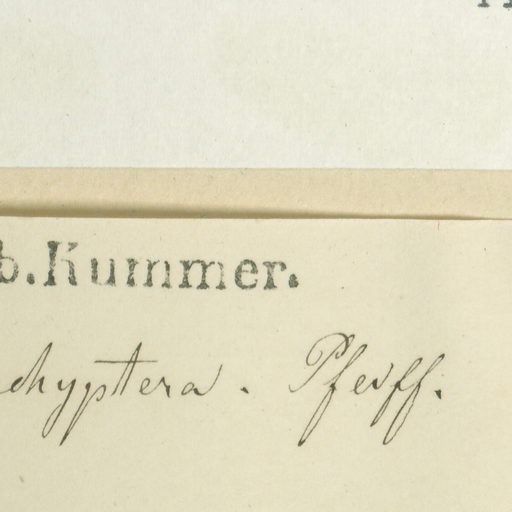 b. Kummer.
chyptera. Pfeiff.